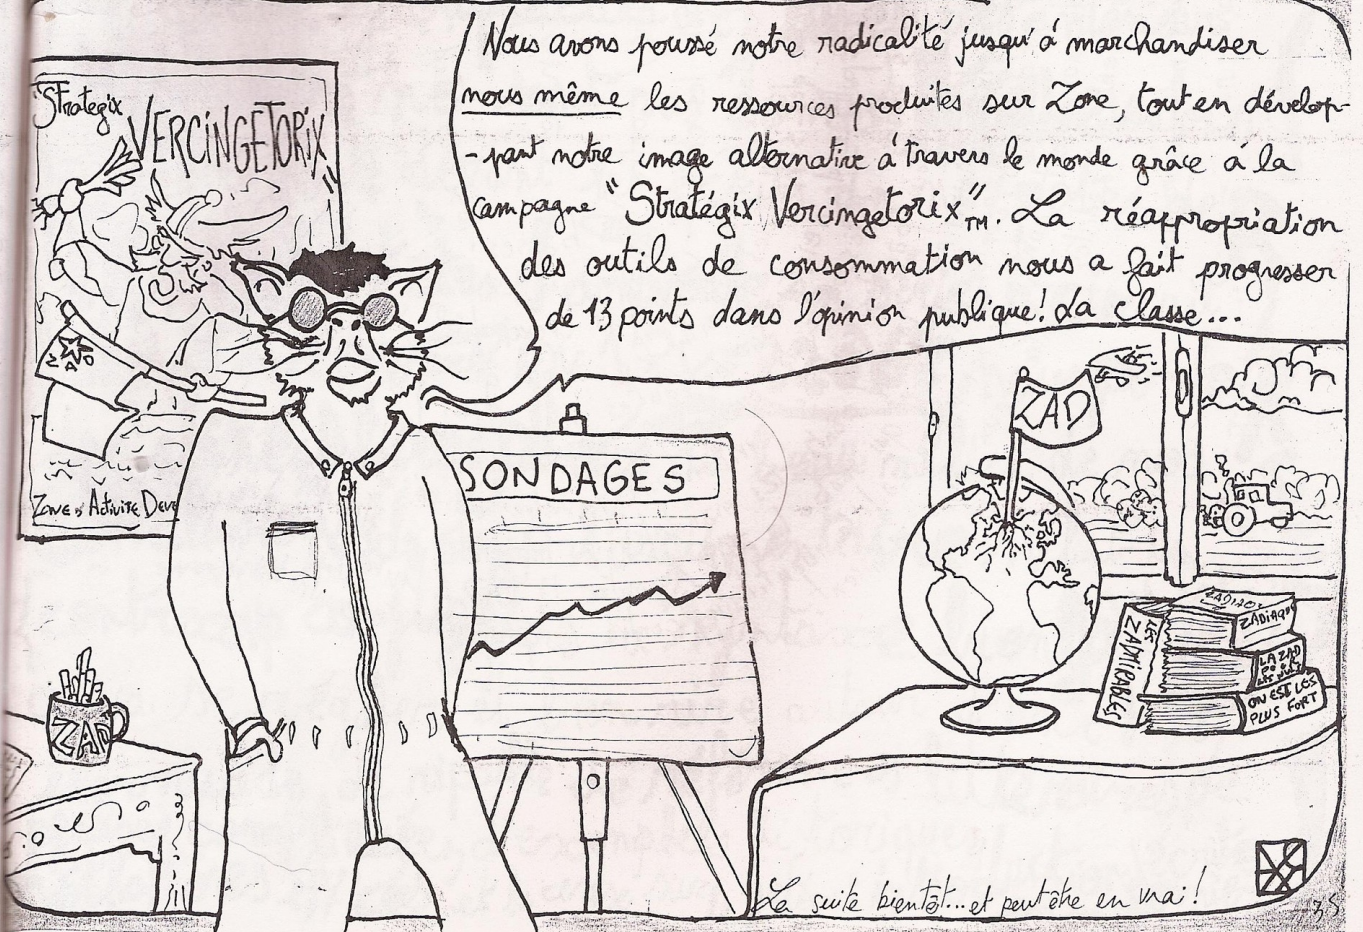 Nous avons poussé notre radicalité jusqu'à marchandiser
nous même les ressources produites sur Zone, tout en dévelop-
-pant notre image alternative à travers le monde grâce à la
campagne "Stratégix Vercingetorix"TM. La réappropriation
des outils de consommation nous a fait progresser
de 13 points dans l'opinion publique! La classe...
Strategix
VERCINGETORIX
ZAD
ZONE d'Activité Deve
SONDAGES
ZAD
ZAD
LES ZADMIRABLES
ZADIAQ
LA ZAD
POUR
LES NULS
ON EST LES
PLUS FORT
La suite bientôt...et peut être en vrai!
35